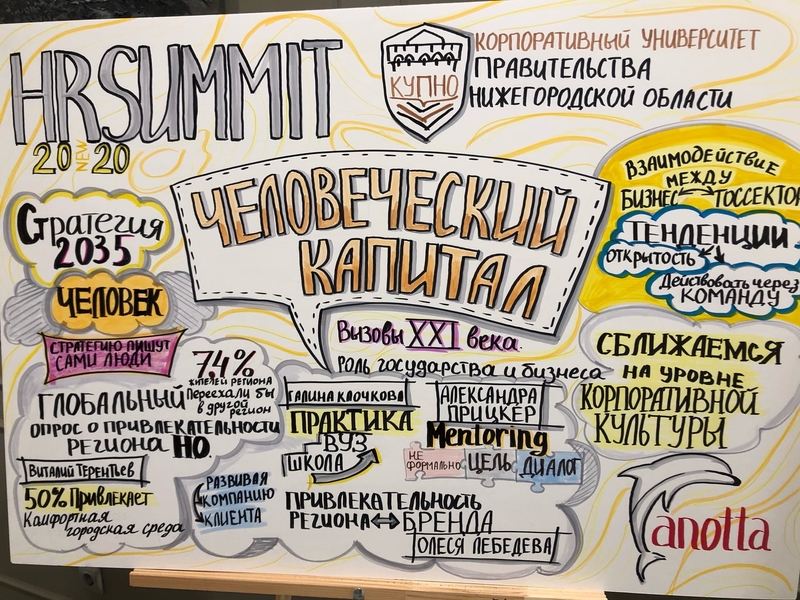 HR SUMMIT
20 NEW 20
КУПНО
КОРПОРАТИВНЫЙ УНИВЕРСИТЕТ
ПРАВИТЕЛЬСТВА
НИЖЕГОРОДСКОЙ ОБЛАСТИ
ЧЕЛОВЕЧЕСКИЙ
КАПИТАЛ
Вызовы XXI века.
РОЛЬ государства и бизнеса
Стратегия
2035
ЧЕЛОВЕК
СТРАТЕГИЮ ПИШУТ
САМИ ЛЮДИ
7,4%
жителей региона
Переехали бы
в другой
регион
ГЛОБАЛЬНЫЙ
ОПРОС О ПРИВЛЕКАТЕЛЬНОСТИ
РЕГИОНА НО.
ВИТАЛИЙ ТЕРЕНТЬЕВ
50% Привлекает
Комфортная
городская среда
РАЗВИВАЯ
КОМПАНИЮ
КЛИЕНТА
ГАЛИНА КЛОЧКОВА
ПРАКТИКА
ВУЗ
ШКОЛА
АЛЕКСАНДРА
ПРИЦКЕР
Mentoring
НЕ
ФОРМАЛЬНО
ЦЕЛЬ
ДИАЛОГ
ПРИВЛЕКАТЕЛЬНОСТЬ
РЕГИОНА ↔ БРЕНДА
ОЛЕСЯ ЛЕБЕДЕВА
ВЗАИМОДЕЙСТВИЕ
МЕЖДУ
БИЗНЕС ↔ ГОССЕКТОР
ТЕНДЕНЦИИ
ОТКРЫТОСТЬ
Действовать через
КОМАНДУ
СБЛИЖАЕМСЯ
НА УРОВНЕ
КОРПОРАТИВНОЙ
КУЛЬТУРЫ
anotta